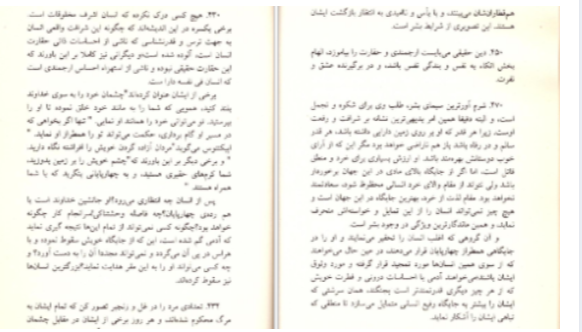 ۴۳۰. هیچ کسی درک نکرده که انسان اشرف مخلوقات است.
برخی یکسره در این اندیشه‌اند که چگونه این شرافت واقعی انسان
به جهت ترس و قدرنشناسی که ناشی از احساسات ذاتی حقارت
انسان است، آلوده شده است و دیگرانی نیز کاملاً بر این باورند که
این حقارت حقیقی نبوده و ناشی از استهزاء احساس ارجمندی است
که انسان فی نفسه دارا ست.
برخی از ایشان عنوان کرده‌اند "چشمان خود را به سوی خداوند
بلند کنید، همویی که شما را به مانند خود خلق نموده تا او را
بپرستید. تو می‌توانی خود را همانند او نمایی. "تنها اگر بخواهی که
در مسیر او گام برداری، حکمت می‌تواند تو را همطراز او نماید. "
اپیکتتوس می‌گوید "مردان آزاده گردن خویش را افراشته نگاه دارید.
" و برخی دیگر بر این باورند که "چشم خویش را بر زمین بدوزید،
شما کرم‌های حقیری هستید، و به چهارپایانی بنگرید که با شما
همراه هستند. "
پس از انسان چه انتظاری می‌رود؟ او جانشین خداوند است یا
هم رده‌ی چهارپایان؟ چه فاصله وحشتناکی! سرانجام کار چگونه
خواهد بود؟ چگونه کسی نمی‌تواند از تمام این‌ها نتیجه گیری نماید
که آدمی گم شده است، این که از جایگاه خویش سقوط نموده و با
هراس در پی آن می‌گردد و نمی‌تواند مجدداً آن را به دست آورد؟ و
چه کسی می‌تواند او را به این مقر هدایت نماید؟ بزرگترین انسان‌ها
نیز سقوط کرده‌اند.
۴۳۴. تعدادی مرد را در غل و زنجیر تصور کن که تمام ایشان به
مرگ محکوم شده‌اند، و هر روز برخی از ایشان در مقابل چشمان
هم‌قطارانشان می‌بینند، و با یأس و ناامیدی به انتظار بازگشت ایشان
هستند. این تصویری از شرایط بشر است.
۴۵۰. دین حقیقی می‌بایست ارجمندی و حقارت را بیاموزد، الهام
بخش اتکاء به نفس و بندگی نفس باشد، و در برگیرنده عشق و
نفرت.
۴۷۰. شرم آورترین سیمای بشر، طلب وی برای شکوه و تجمل
است، و البته دقیقا همین امر بدیهی‌ترین نشانه بر شرافت و رفعت
اوست، زیرا هر قدر که او بر روی زمین دارایی داشته باشد، هر قدر
سالم و در رفاه باشد باز هم ناراضی خواهد بود مگر این که از آرای
خوب دوستانش بهره‌مند باشد. او ارزش بسیاری برای خرد و منطق
قائل است، اما اگر از جایگاه بالای مادی در این جهان برخوردار
باشد ولی نتواند از مقام والای خرد انسانی محظوظ شود، سعادتمند
نخواهد بود. مقام لذت از خرد، بهترین جایگاه در این جهان است و
هیچ چیز نمی‌تواند انسان را از این تمایل و خواسته‌اش منحرف
نماید، و همین ماندگارترین ویژگی در وجود بشر است.
و آن گروهی که اغلب انسان را تحقیر می‌نمایند و او را در
جایگاهی همطراز چهارپایان قرار می‌دهند، در عین حال می‌خواهند
که از سوی همین انسان‌ها مورد تمجید قرار گرفته و مورد وثوق
ایشان باشند. می‌خواهند آدمی با احساسات درونی و فطرت خویش
که از هر چیز دیگری قدرتمندتر است بجنگد، همان سرشتی که
ایشان را بیشتر به جایگاه رفیع انسانی متمایل می‌سازد تا منطقی که
تباهی ایشان را آشکار نماید.